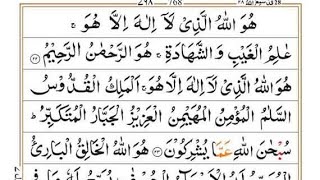 هُوَ اللّٰهُ الَّذِیْ لَاۤ اِلٰهَ اِلَّا هُوَ ۚ
عٰلِمُ الْغَیْبِ وَ الشَّهَادَةِ ۚ هُوَ الرَّحْمٰنُ الرَّحِیْمُ ﴿۲۲﴾
هُوَ اللّٰهُ الَّذِیْ لَاۤ اِلٰهَ اِلَّا هُوَ ۚ اَلْمَلِكُ الْقُدُّوْسُ
السَّلٰمُ الْمُؤْمِنُ الْمُهَیْمِنُ الْعَزِیْزُ الْجَبَّارُ الْمُتَكَبِّرُ ؕ
سُبْحٰنَ اللّٰهِ عَمَّا یُشْرِكُوْنَ ﴿۲۳﴾ هُوَ اللّٰهُ الْخَالِقُ الْبَارِئُ